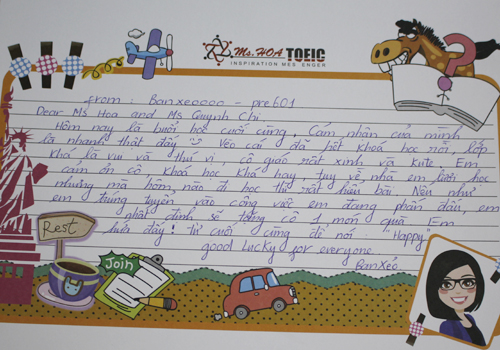 Ms.HOA TOEIC
INSPIRATION MES ENGER
from : Banxeoooo - pre601
Dear Ms Hoa and Ms Quỳnh Chi
Hôm nay là buổi học cuối cùng. Cảm nhận của mình
là nhanh thật đấy Vèo cái đã hết khoá học rồi, lớp
khá là vui và thú vị, cô giáo rất xinh và kute. Em
cảm ơn cô khoá học khá hay, tuy về nhà em lười học
nhưng mà hôm nào đi học thì rất hiểu bài. Nếu như
em trúng tuyển vào công việc em đang phấn đấu, em
nhất định sẽ tặng cô 1 món quà. Em
hứa đấy! Từ cuối cùng để nói "Happy"
good Lucky for everyone
BanXéo
Rest
Join